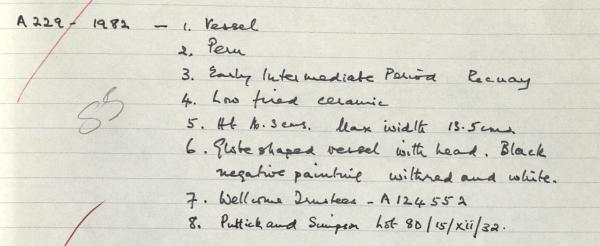 A 229 - 1982 - 1. Vessel
2. Peru
3. Early Intermediate Period Recuay
4. Low fired ceramic
5. Ht 16.3 cms. Max width 13.5 cms
6. Globe shaped vessel with head. Black
negative painting with red and white.
7. Wellcome Trustees - A124552
8. Puttick and Simpson Lot 80/15/xii/32.